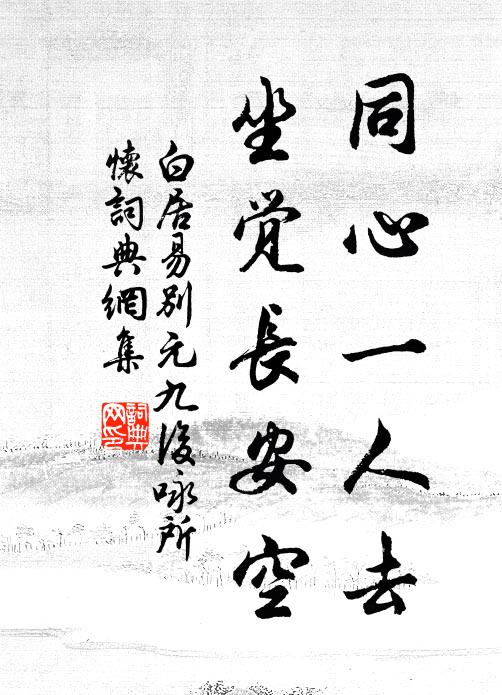 同心一人去
坐觉長安空
白居易别元九後咏所
懷詞典網集
詞典
网印